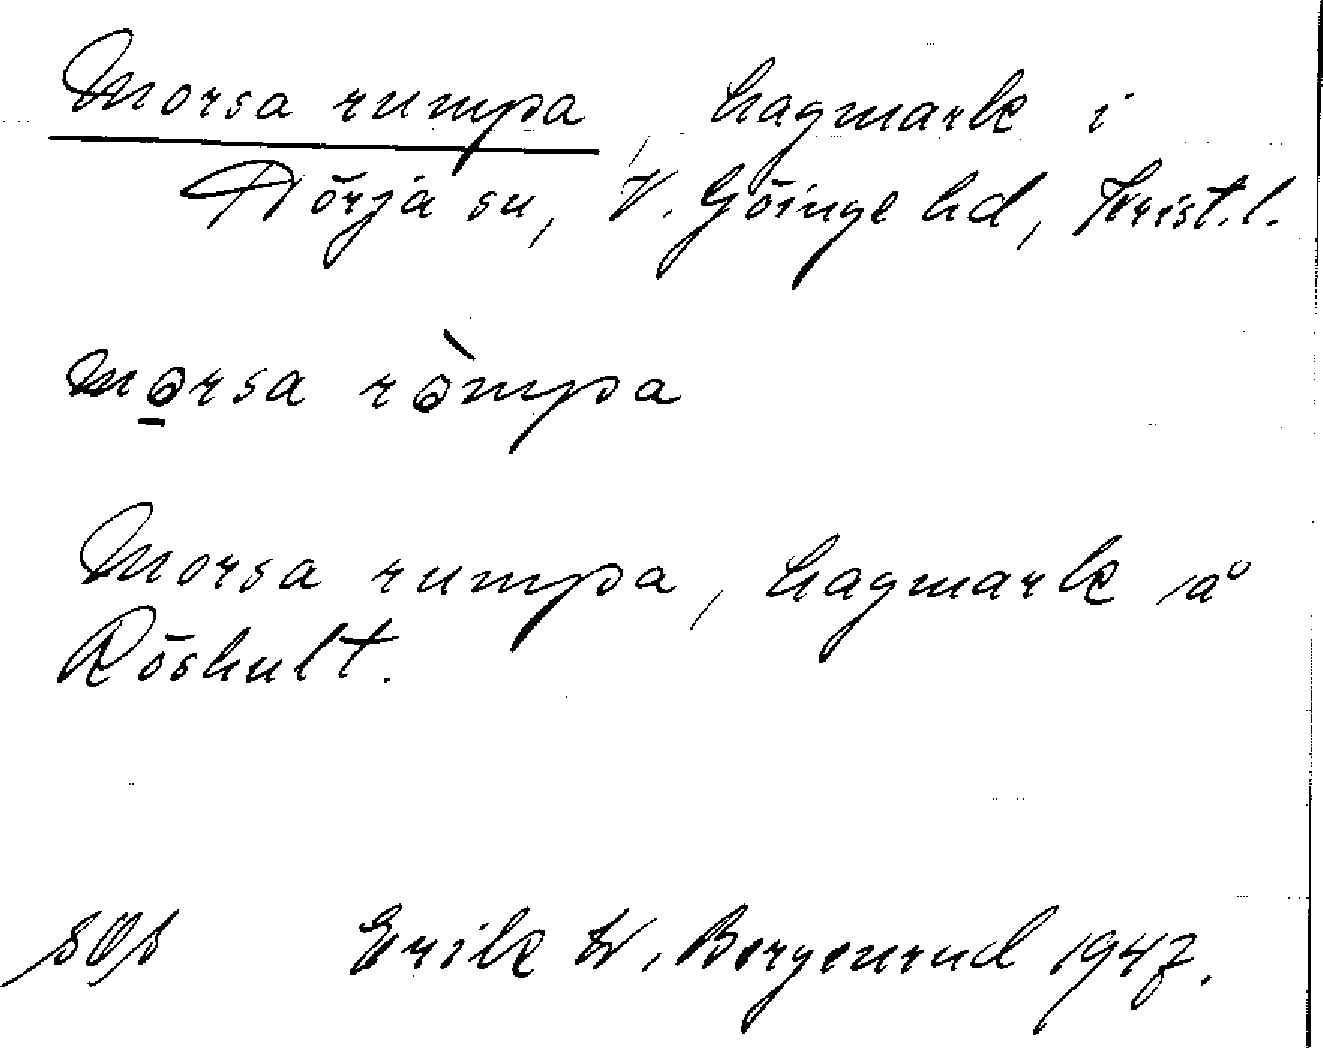 Morsa rumpa, hagmark i
Nörja sn, V. Göinge hd, Krist. l.
mo̱rsa ròmpa
Morsa rumpa, hagmark å
Röshult.
Erik W. Bergenrud 1947.